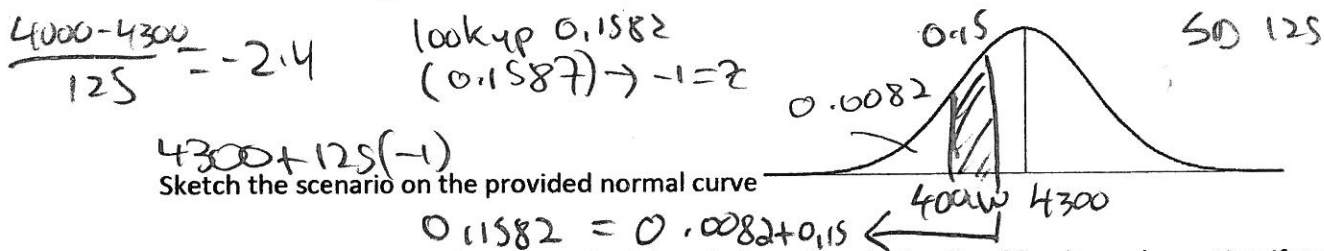 4000-4300
125
= -2.4
lookup 0.1582
(0.1587) → -1 = z
0.15
SD 125
0.0082
4300 + 125(-1)
Sketch the scenario on the provided normal curve
4000 w 4300
0.1582 = 0.0082 + 0.15 ←